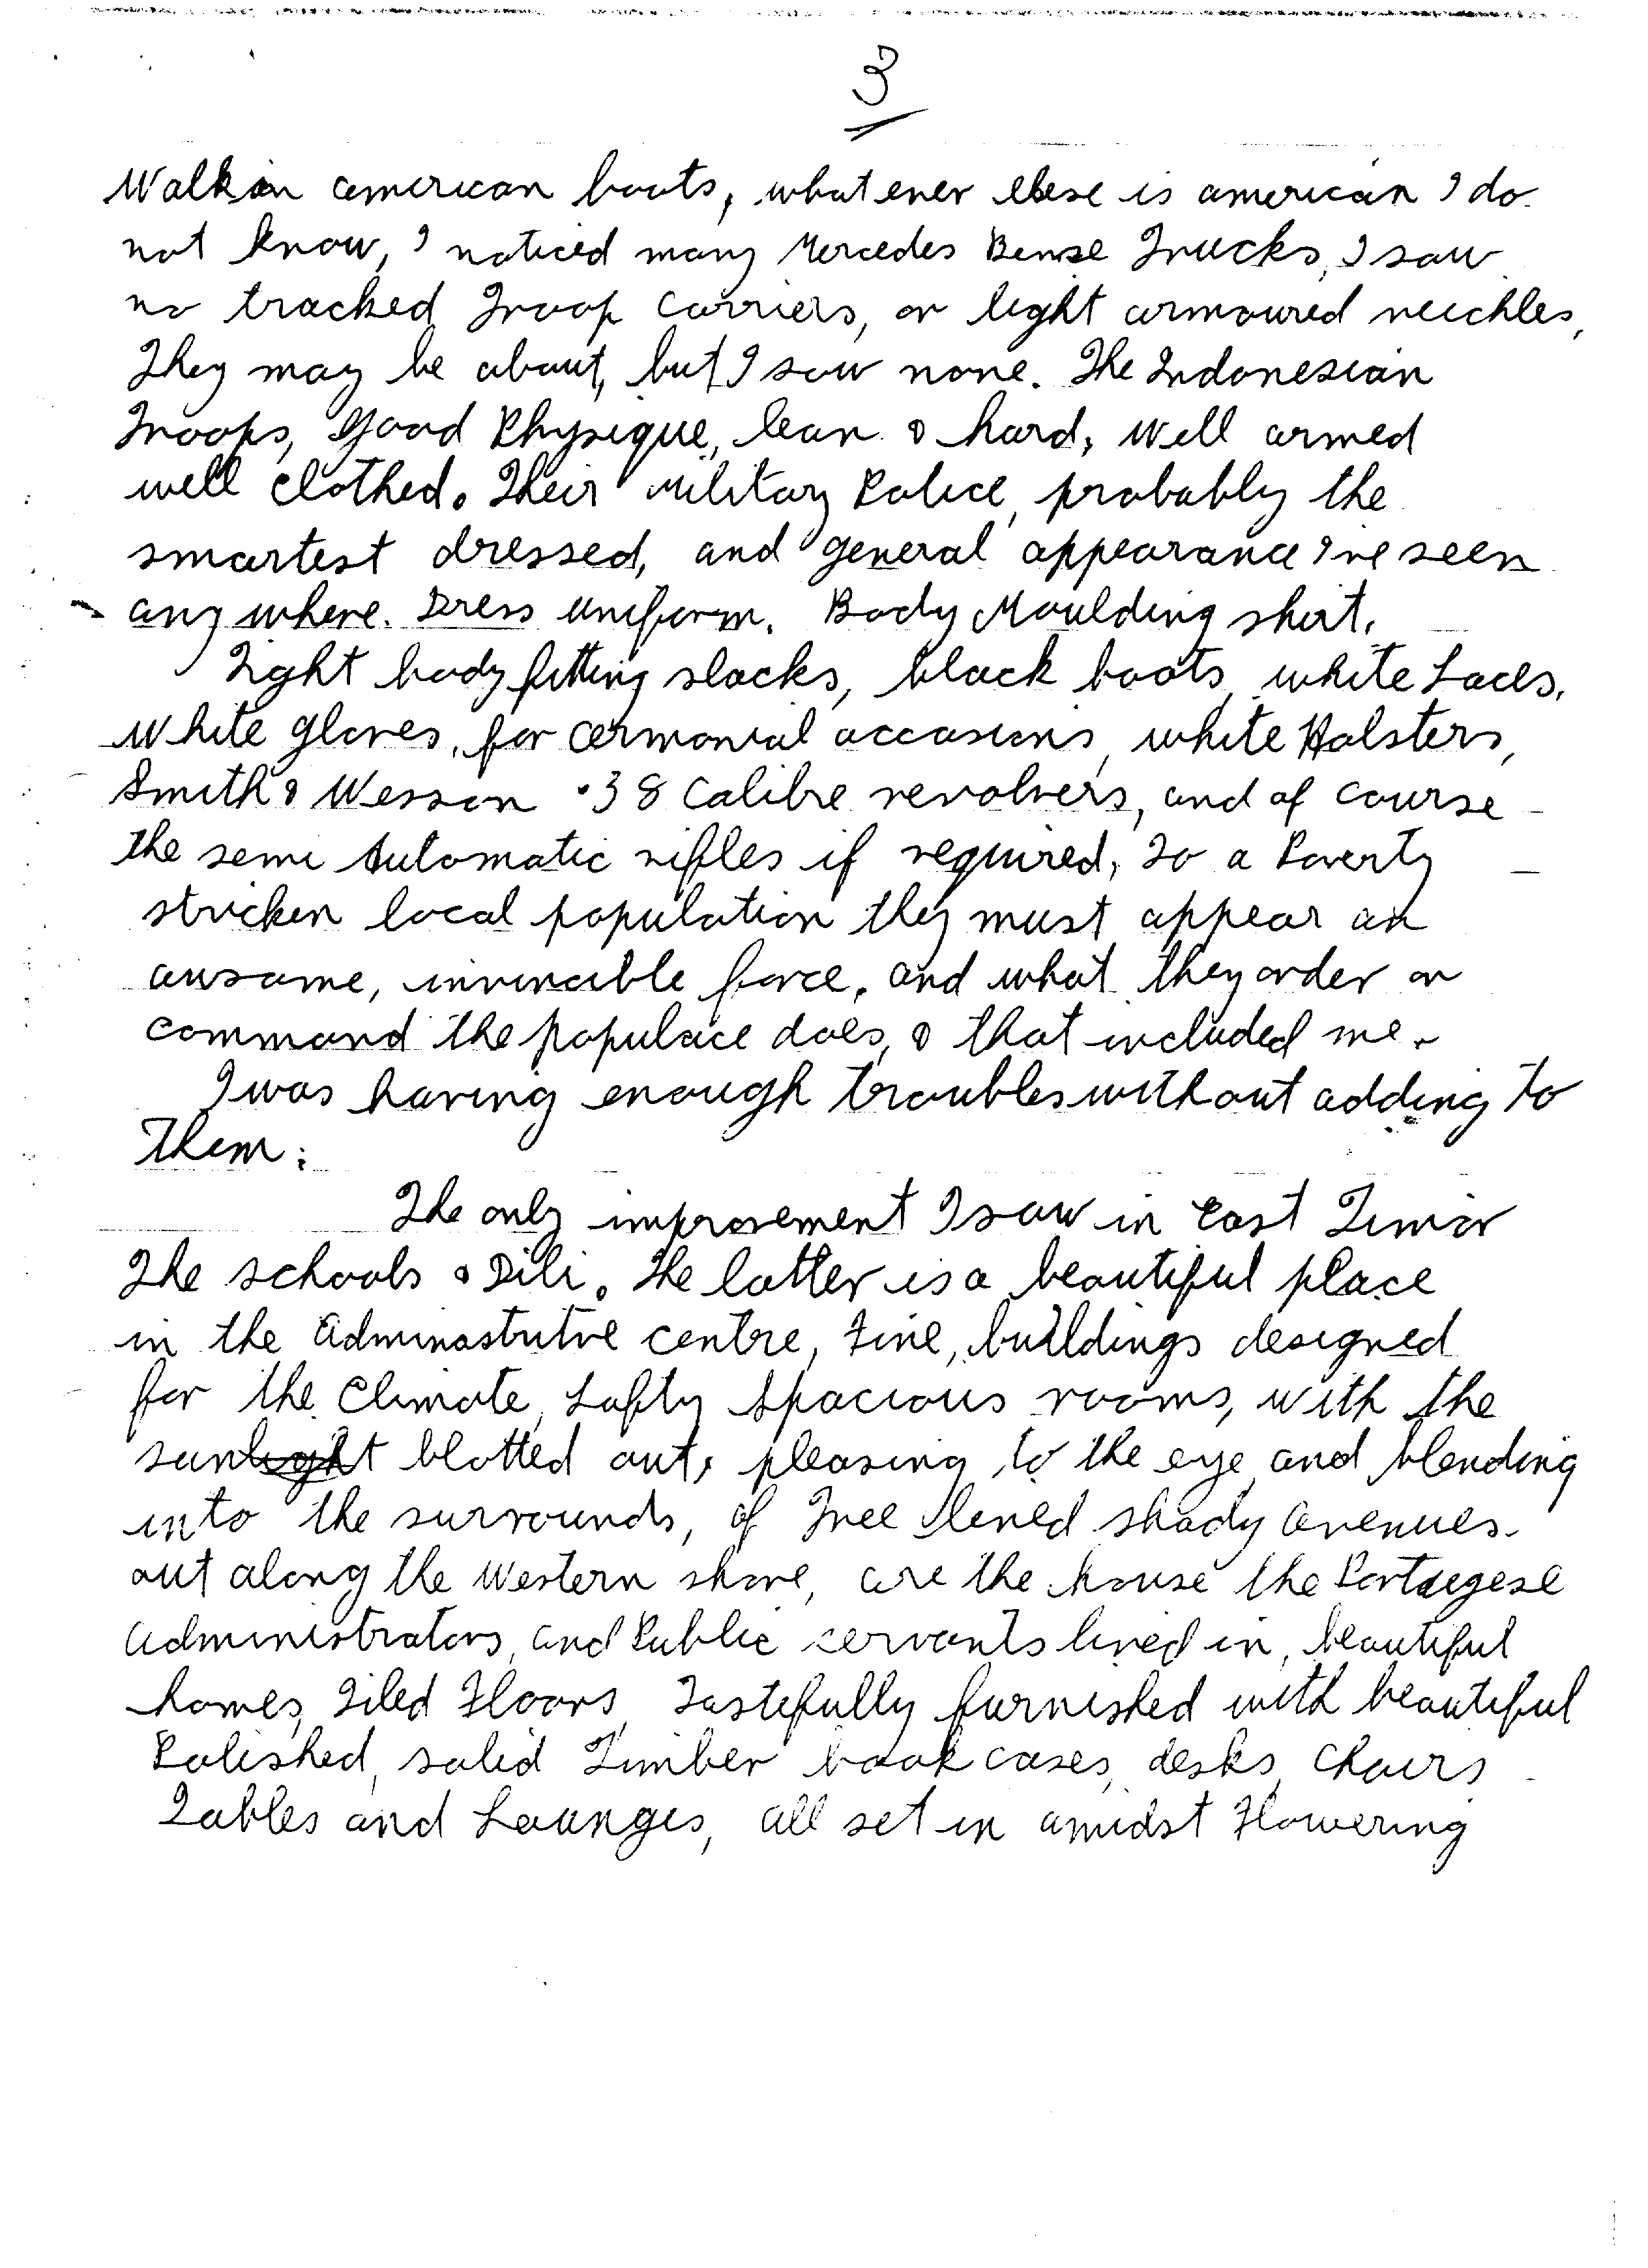 3
Walk in american boots, what ever elese is american I do
not know, I noticed many Mercedes Bense Trucks, I saw
no tracked Troop Carriers, or light armoured veichles,
They may be about, but I saw none. The Indonesian
Troops, Good Physique, lean & hard, well armed
well clothed. Their Military Police, probably the
smartest dressed, and general appearance I've seen
any where. Dress uniform. Body Moulding shirt,
Tight body fitting slacks, black boots, white Laces,
White gloves, for cermonial occasions, white Holsters,
Smith & Wesson .38 Calibre revolvers, and of course
the semi Automatic rifles if required, To a Poverty
stricken local population they must appear an
awsome, invincible force, and what they order or
command the populace does, & that included me.
I was having enough troubles without adding to
Them:
The only improvement I saw in East Timor
The schools & Dili. The latter is a beautiful place
in the Adminastrutve centre, Fine, buildings designed
for the Climate, Lofty Spacious rooms, with the
sunlight blotted out, pleasing to the eye and blending
into the surrounds, of Tree lined shady avenues.
out along the Western shore, are the house the Portuegese
administrators, and Public servants lived in, beautiful
homes, Tiled Floors, Tastefully furnished with beautiful
Polished, solid Timber book cases, desks, Chairs
Tables and Lounges, all set in amidst Flowering